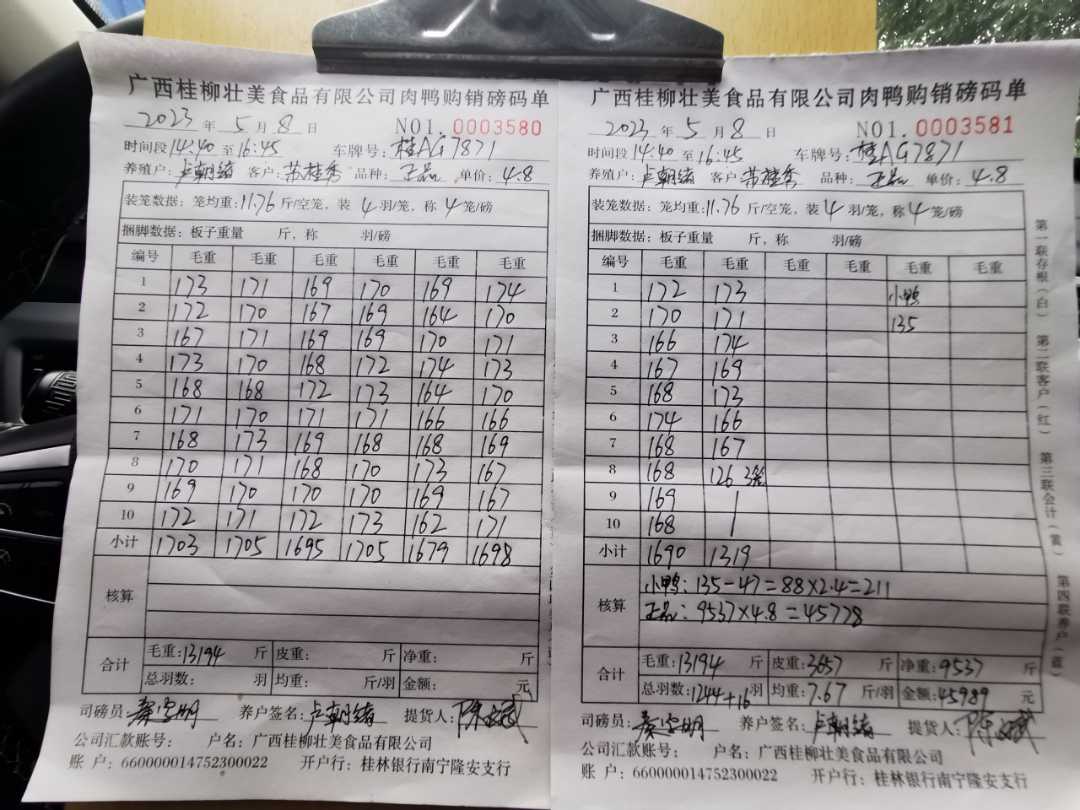 广西桂柳壮美食品有限公司肉鸭购销磅码单
2023 年 5 月 8 日 NO1. 0003580
时间段 14:40 至 16:45 车牌号: 桂AG7871
养殖户: 卢朝绪 客户: 苏桂秀 品种: 正品 单价: 4.8
装笼数据: 笼均重: 11.76 斤/空笼, 装 4 羽/笼, 称 4 笼/磅
捆脚数据: 板子重量 斤, 称 羽/磅
编号 毛重 毛重 毛重 毛重 毛重 毛重
1 173 171 169 170 169 174
2 172 170 167 169 164 170
3 167 171 169 169 170 171
4 173 170 168 172 174 173
5 168 168 172 173 164 170
6 171 170 171 171 166 166
7 168 173 169 168 168 169
8 170 171 168 170 173 167
9 169 170 170 170 169 167
10 172 171 172 173 162 171
小计 1703 1705 1695 1705 1679 1698
核算
合计 毛重: 13194 斤 皮重: 斤 净重: 斤
总羽数: 羽 均重: 斤/羽 金额: 元
司磅员: 养户签名: 卢朝绪 提货人:
公司汇款账号: 户名: 广西桂柳壮美食品有限公司
账 户: 660000014752300022 开户行: 桂林银行南宁隆安支行
广西桂柳壮美食品有限公司肉鸭购销磅码单
2023 年 5 月 8 日 NO1. 0003581
时间段 14:40 至 16:45 车牌号: 桂AG7871
养殖户: 卢朝绪 客户: 苏桂秀 品种: 正品 单价: 4.8
装笼数据: 笼均重: 11.76 斤/空笼, 装 4 羽/笼, 称 4 笼/磅
捆脚数据: 板子重量 斤, 称 羽/磅
编号 毛重 毛重 毛重 毛重 毛重 毛重
1 172 173 小鸭
2 170 171 135
3 166 174
4 167 169
5 168 173
6 174 166
7 168 167
8 168 126 3笼
9 169 1
10 168 1
小计 1690 1319
核算 小鸭: 135-47=88×2.4=211
正品: 9537×4.8=45778
合计 毛重: 13194 斤 皮重: 3657 斤 净重: 9537 斤
总羽数: 1244+16 羽 均重: 7.67 斤/羽 金额: 45989 元
司磅员: 养户签名: 卢朝绪 提货人:
公司汇款账号: 户名: 广西桂柳壮美食品有限公司
账 户: 660000014752300022 开户行: 桂林银行南宁隆安支行
第一联存根(白) 第二联客户(红) 第三联会计(黄) 第四联养户(蓝)